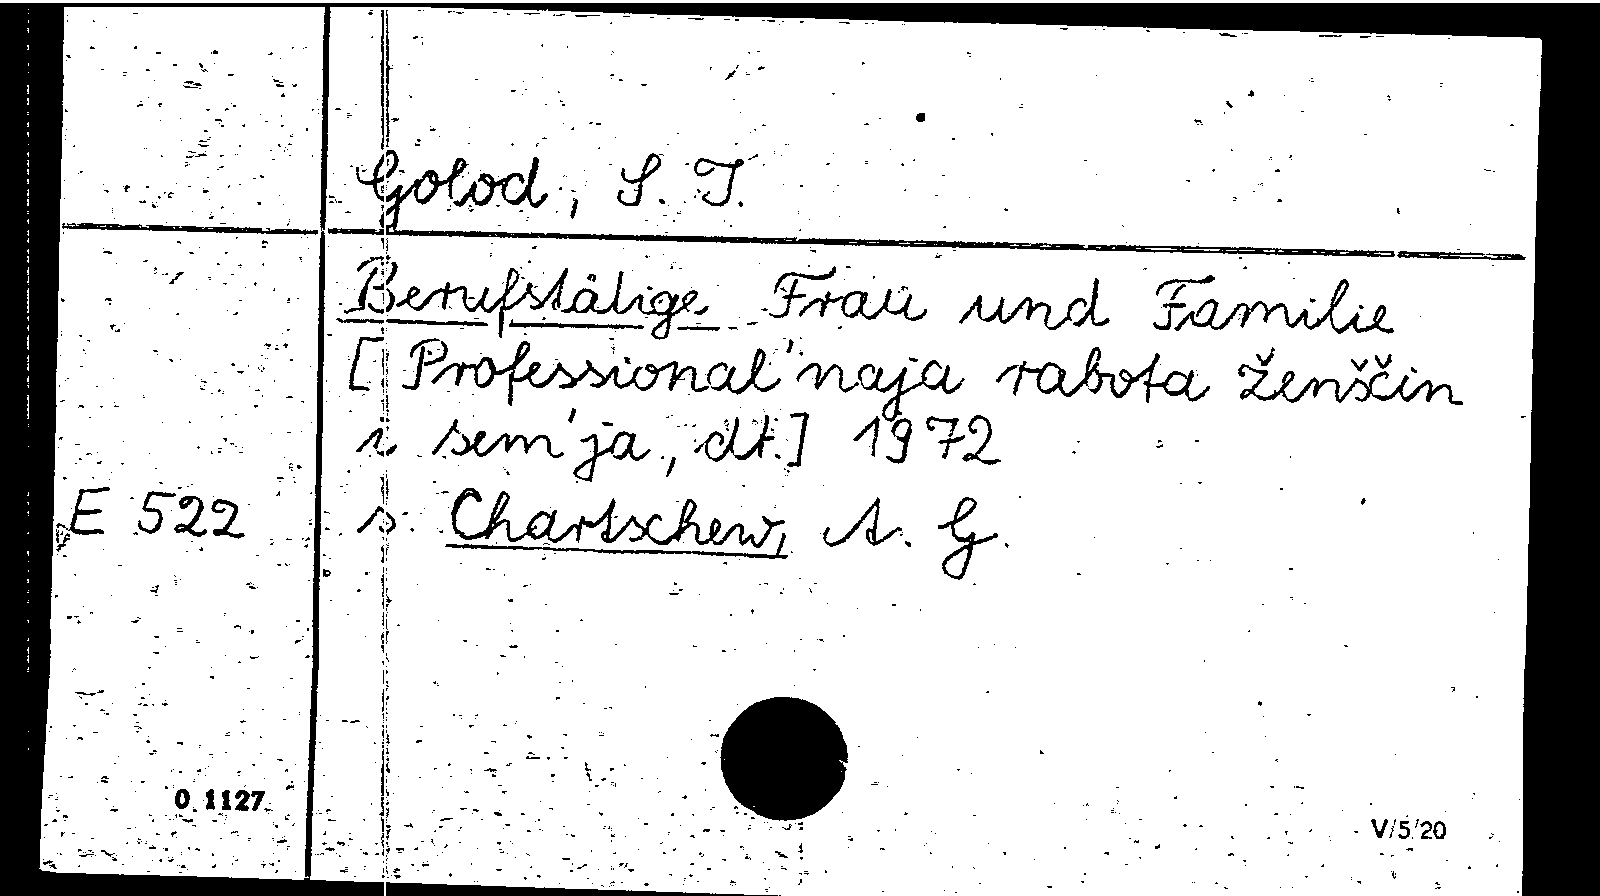 Golod, S. I.
Berufstätige Frau und Familie
[Professional'naja rabota ženščin
i sem'ja, dt.] 1972
E 522 s. Chartschew, A. G.
0 1127
V/5/20